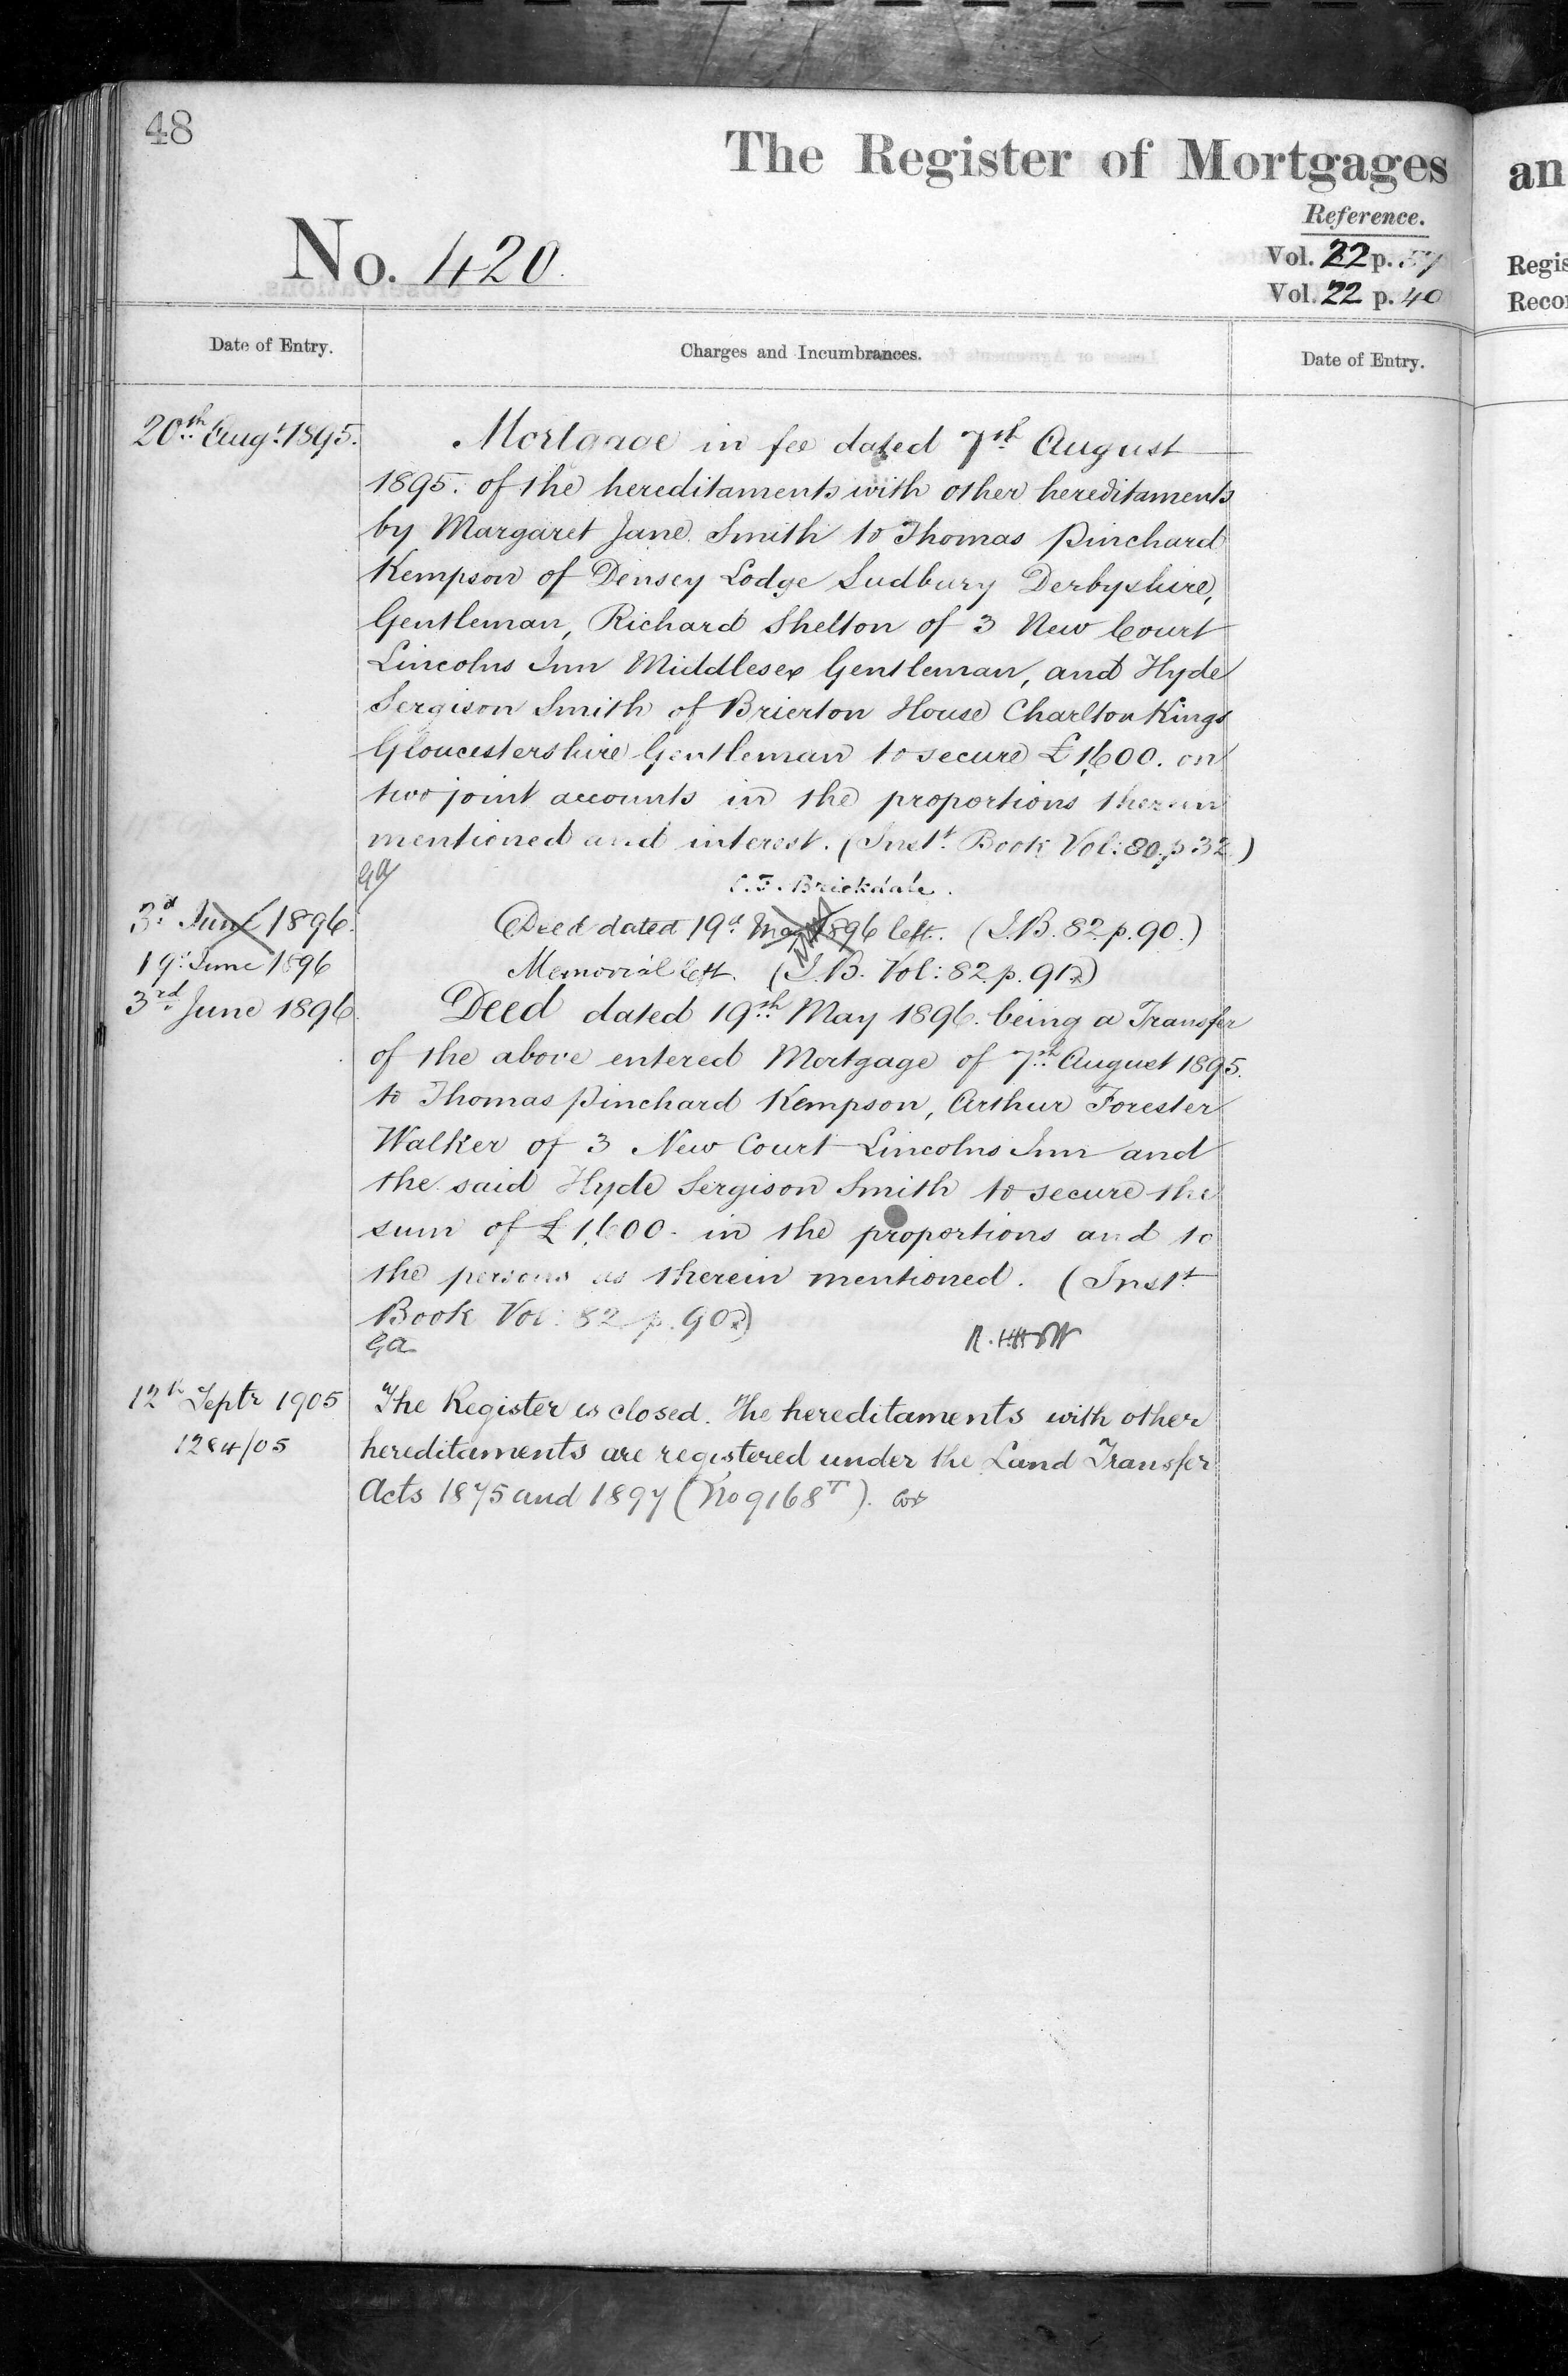 48
The Register of Mortgages
an
Reference.
No. 420.
Vol. 22 p.
Vol. 22 p. 40
Regis
Recor
Date of Entry.
Charges and Incumbrances.
Date of Entry.
20th Augt. 1895. Mortgage in fee dated 7th August
1895. of the hereditaments with other hereditaments
by Margaret Jane Smith to Thomas Pinchard
Kempson of Densey Lodge Sudbury Derbyshire,
Gentleman, Richard Shelton of 3 New Court
Lincolns Inn Middlesex Gentleman, and Hyde
Sergison Smith of Brierton House Charlton Kings
Gloucestershire Gentleman to secure £1,600. on
two joint accounts in the proportions therein
mentioned and interest. (Inst. Book Vol: 80. p 32)
Ga
C. F. Brickdale.
3d June 1896. Deed dated 19th May 1896 left. (I.B. 82 p. 90.)
19: June 1896 Memorial left. (I.B. Vol: 82 p. 91)
3rd June 1896. Deed dated 19th May 1896. being a Transfer
of the above entered Mortgage of 7th August 1895.
to Thomas Pinchard Kempson, Arthur Forester
Walker of 3 New Court Lincolns Inn and
the said Hyde Sergison Smith to secure the
sum of £1,600. in the proportions and to
the persons as therein mentioned. (Inst
Book Vol: 82. p. 90)
Ga
12th Septr 1905 The Register is closed. The hereditaments with other
1284/05 hereditaments are registered under the Land Transfer
Acts 1875 and 1897 (No 9168T).